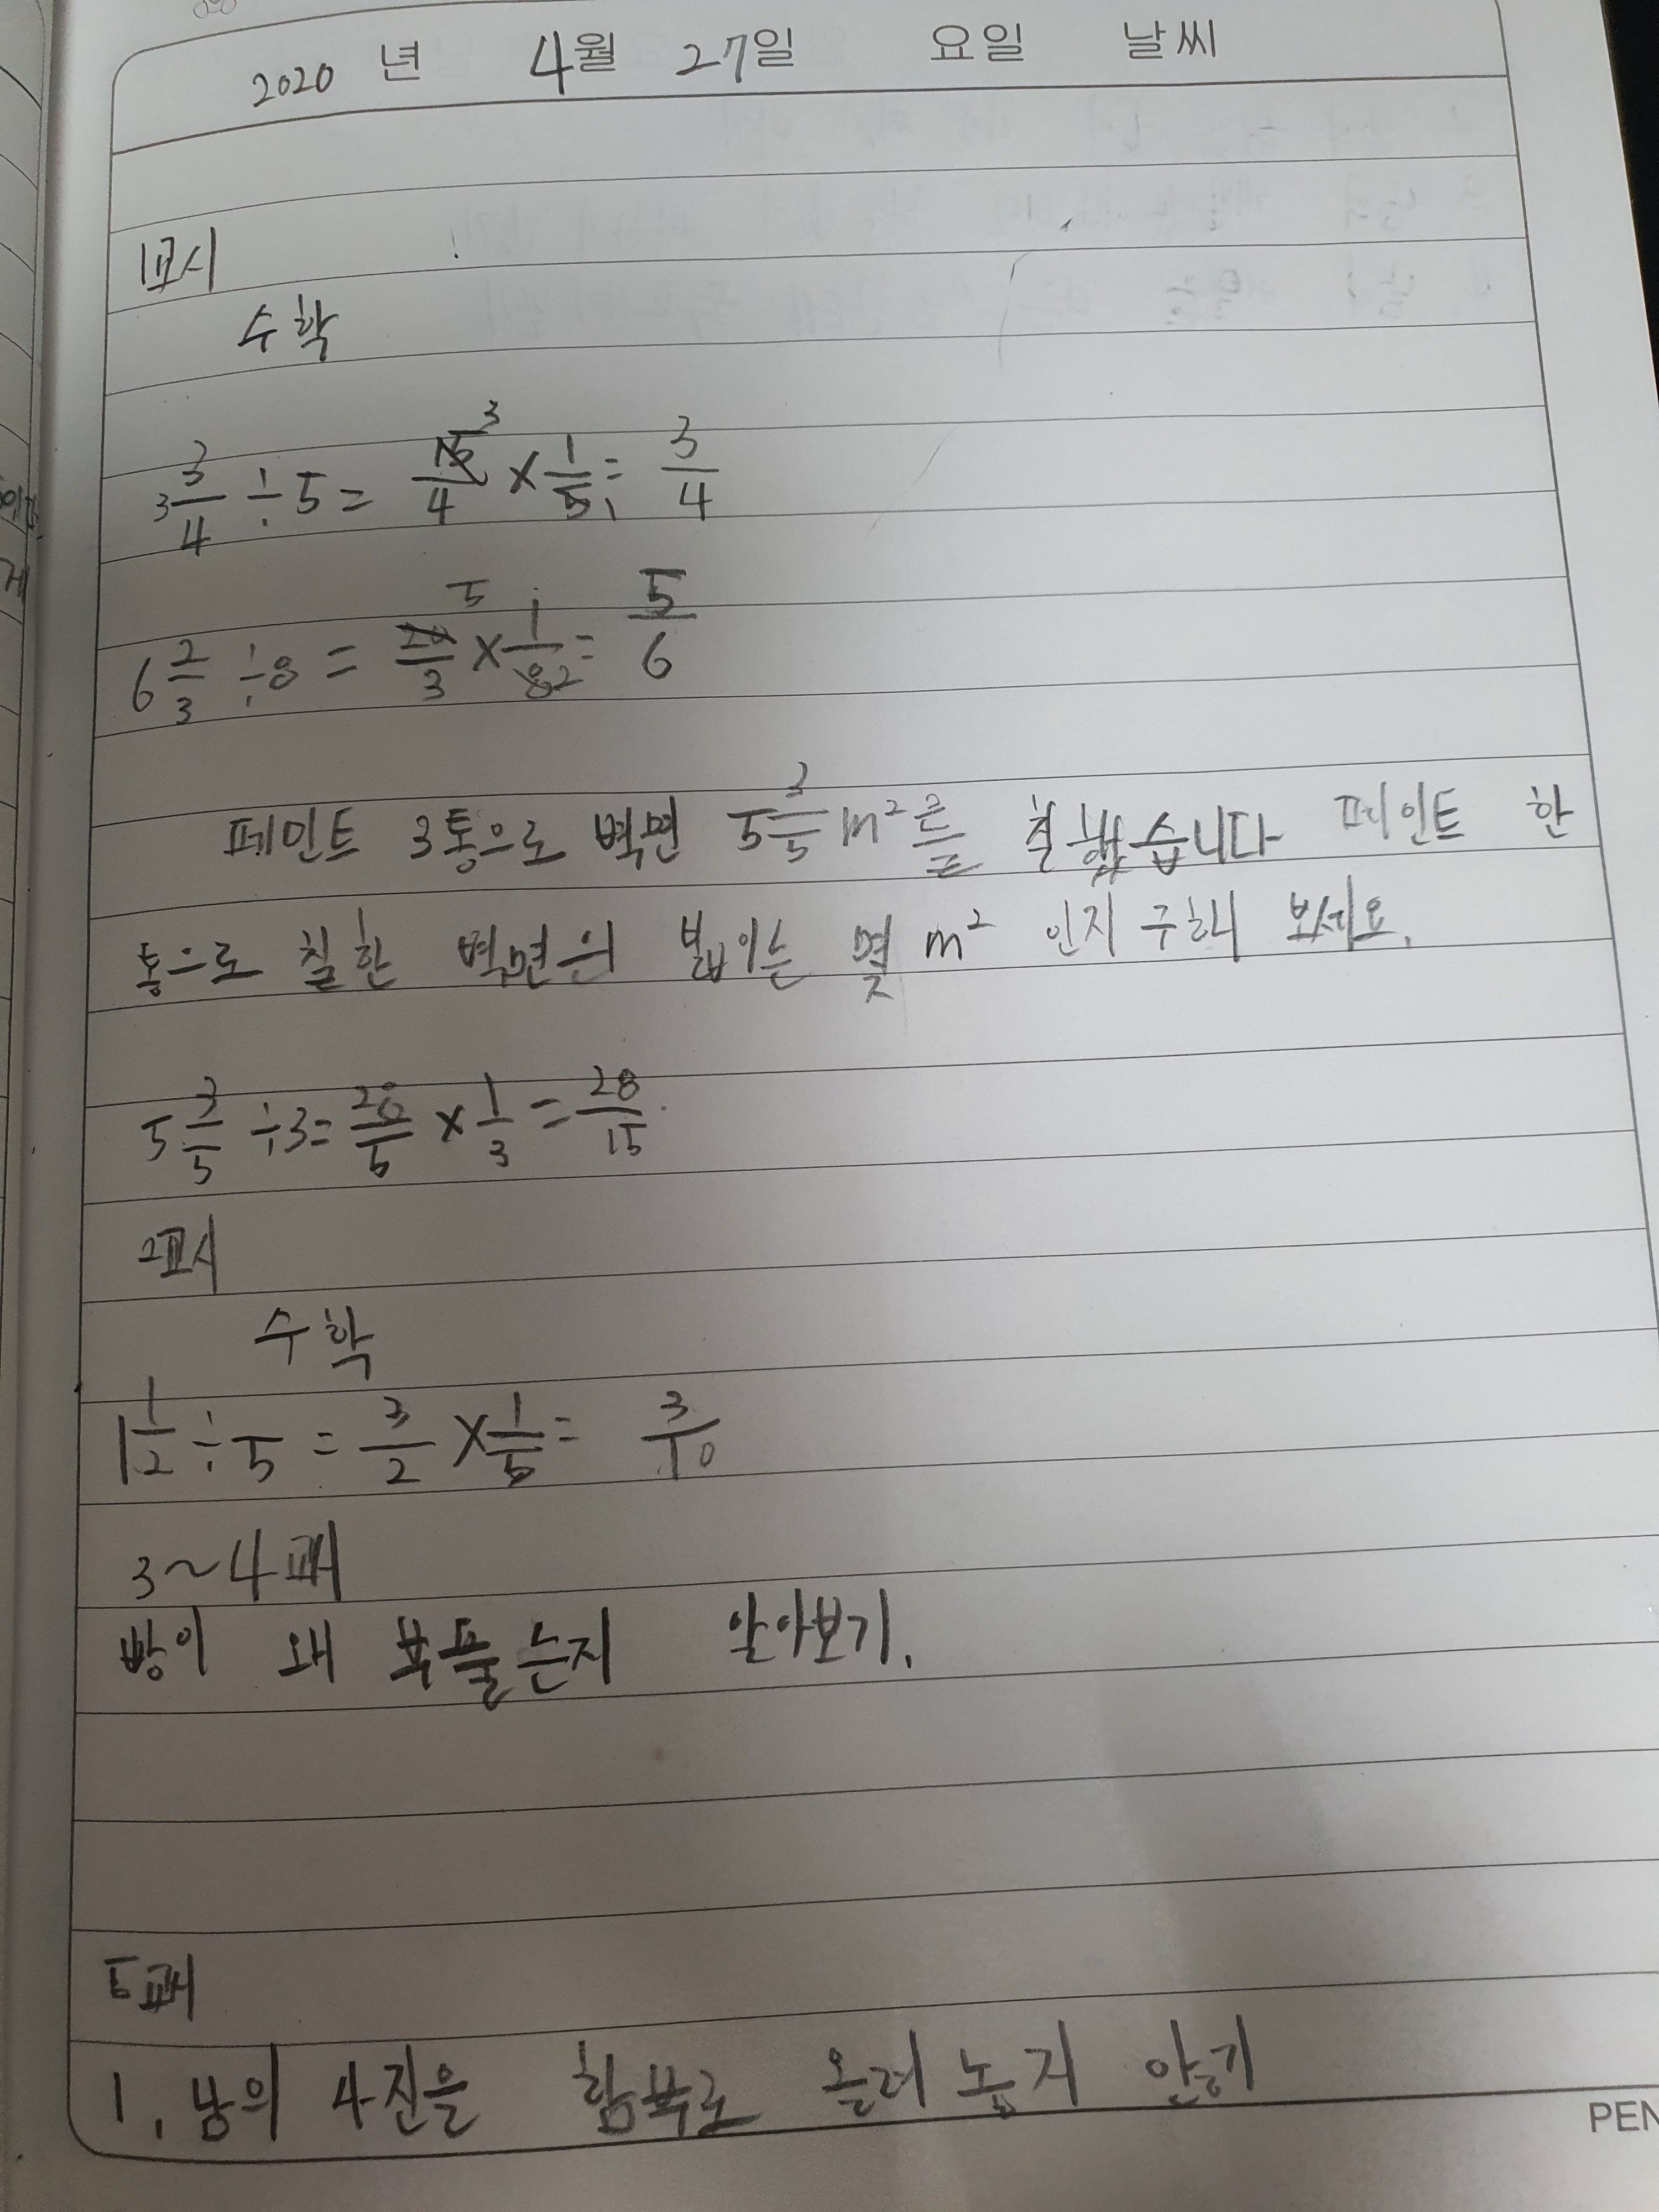 2020 년 4월 27일 요일 날씨
1교시
수학
3 3/4 ÷ 5 = 15/4 3 × 1/5 1 = 3/4
6 2/3 ÷ 8 = 20/3 5 × 1/8 2 = 5/6
페인트 3통으로 벽면 5 3/5 m²를 칠했습니다 페인트 한
통으로 칠한 벽면의 넓이는 몇 m² 인지 구해 보세요.
5 3/5 ÷ 3 = 28/5 × 1/3 = 28/15
2교시
수학
1 1/2 ÷ 5 = 3/2 × 1/5 = 3/10
3~4교시
빵이 왜 부풀는지 알아보기.
5교시
1. 남의 사진을 함부로 올려 놓지 않기
PEN